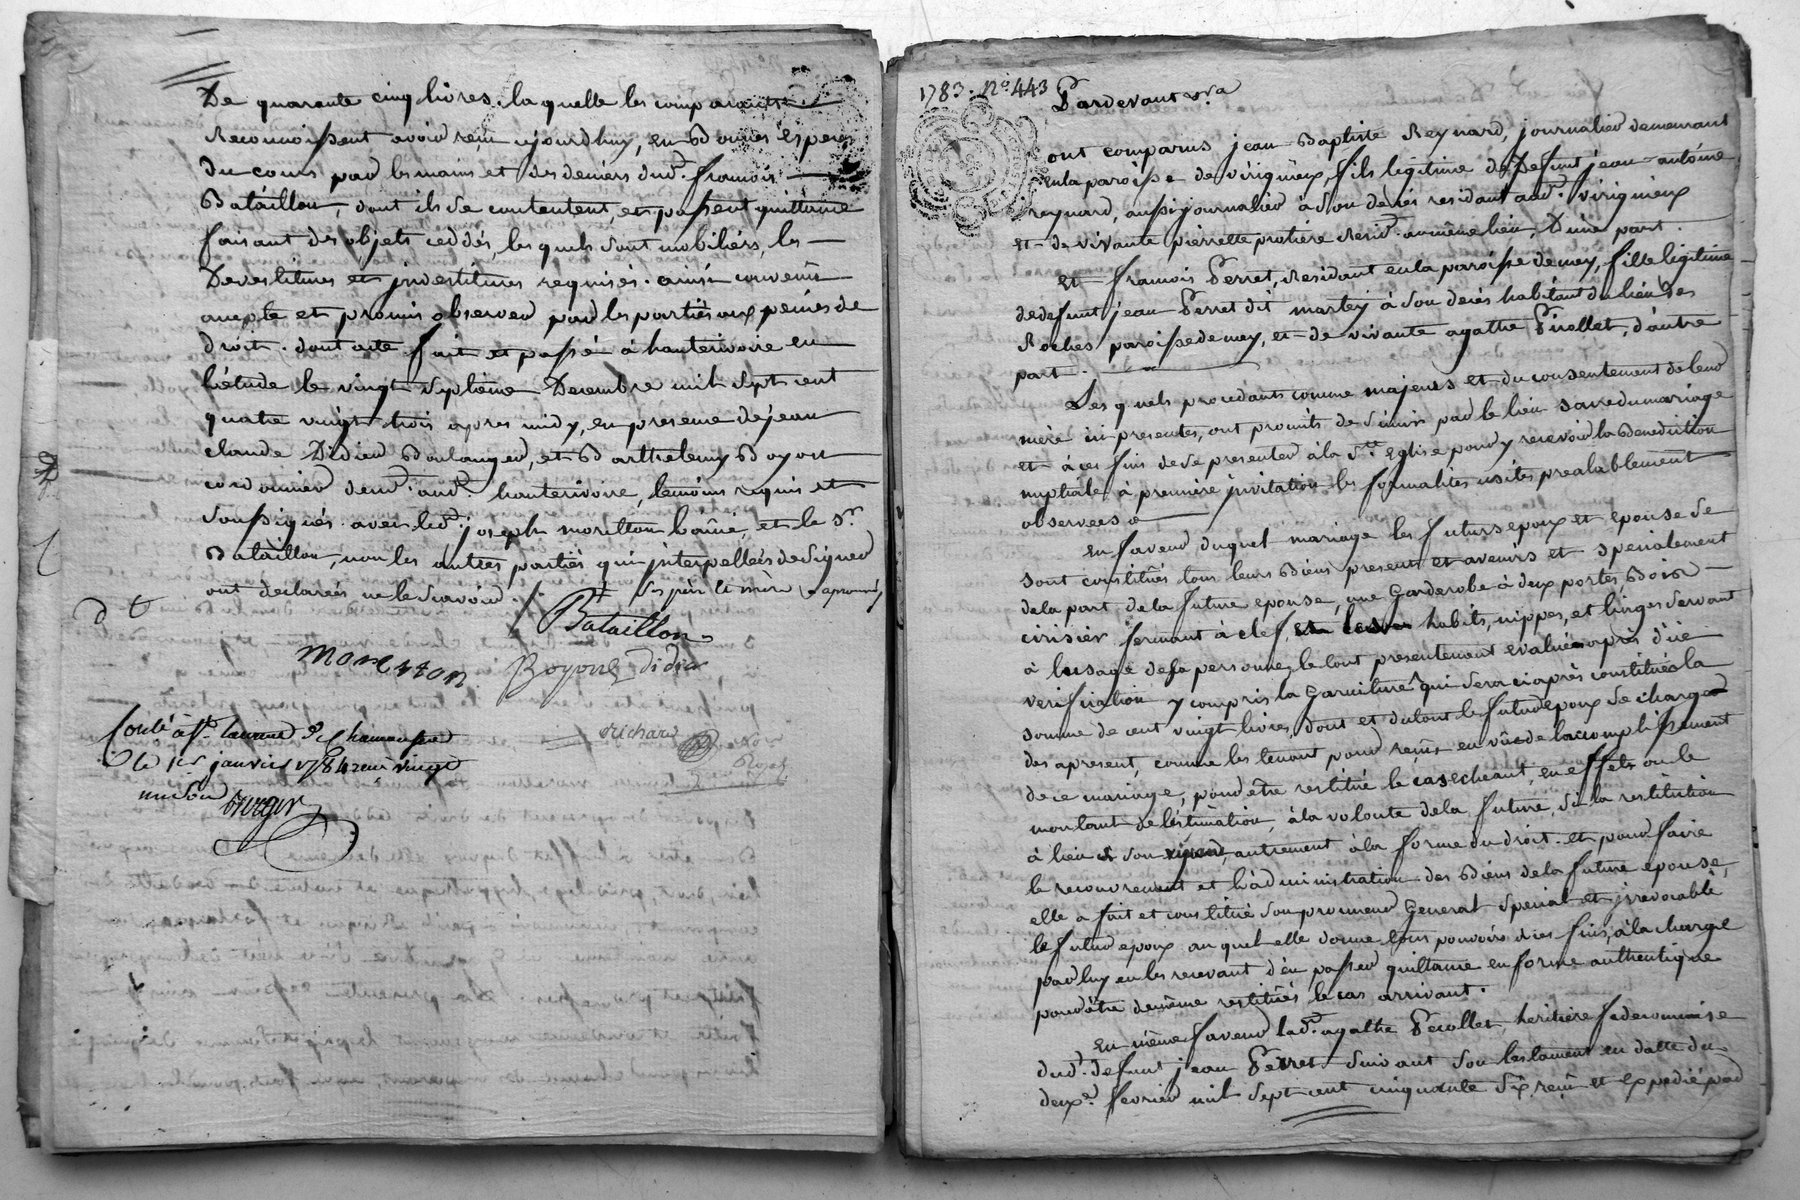 De quarante cinq livres. la quelle les comparants
Reconnoissent avoir reçu cejourdhuy, en Bonnes especes
Du cours par les mains et des deniers dud. francois
Bataillon, dont ils se contentent, et passent quittance
faisant des objets ceddés, les quels sont mobiliers, les
Devestitures et jnvestitures requises. ainsi convenu
accepté et promis observer par les parties aux peines de
droit. dont acte fait et passé à hauterivoire en
l'étude le vingt septième Decembre mil sept cent
quatre vingt trois apres midy, en presence de jean
claude Didier Boulanger, et Barthelemy Boyon
cordonnier demt. aud. hauterivoire, temoins requis et
soussignés avec led. joseph morellon l'ainé, et le Sr.
Bataillon, non les autres parties qui jnterpellées de signer
ont declarées ne le scavoir.
Bataillon
morellon Boyon didier
richard
Conlé à St. laurent de Chamousset
le 1er janvier 1784 reçu vingt
un sou
1783. No. 443
Pardevant
ont comparus jean Baptiste Reynard, journalier demeurant
en la paroisse de virigneux, fils légitime de Defunt jean antoine
reynard, aussi journalier à son décès residant aud. virigneux
et de vivante pierrette protiere resid. au même lieu, D'une part.
Et francois Perret, Residant en la paroisse de mey, fille légitime
de defunt jean Perret dit martey à son décès habitant du lieu des
Roches paroisse de mey, et de vivante agathe Pirollet, d'autre
part.
Les quels procedants comme majeurs et du consentement de leur
mère ici presentes, ont promis de s'unir par le lien sacré du mariage
et à ces fins de se presenter à la Ste. Eglise pour y recevoir la Benediction
nuptiale à premiere jnvitation les formalités usités prealablement
observées
En faveur duquel mariage les futurs epoux et epouse se
sont constitués tous leurs Biens presents et avenirs et specialement
de la part de la future epouse, une Garderobe à deux portes Bois
cirisier fermant à clef habits, nippes, et linges servant
à lusage de sa personne, le tout presentement evalué après d'ue
verification y compris la Garniture qui sera ci après constituée la
somme de cent vingt livres, dont et du tout le futur epoux se charge
des apresent, comme les tenant pour reçus en vüe de lacomplissement
de ce mariage, pour être restitué le cas echeant, en effets ou le
montant de l'estimation, à la volonté de la future, si la restitution
à lieu de son vivant, autrement à la forme du droit. et pour faire
le recouvrement et l'administration des Biens de la future epouse,
elle a fait et constitué son procureur General special et jrrevocable
le futur epoux au quel elle donne tous pouvoirs à ces fins, à la charge
par luy en les recevant d'en passer quittance en forme authentique
pour être de même restitués le cas arrivant.
En même faveur lad. agathe Perollet, heritiere fideicommise
dud. defunt jean Perret suivant son testament en datte du
deux. fevrier mil sept cent cinquante six reçu et expedié par